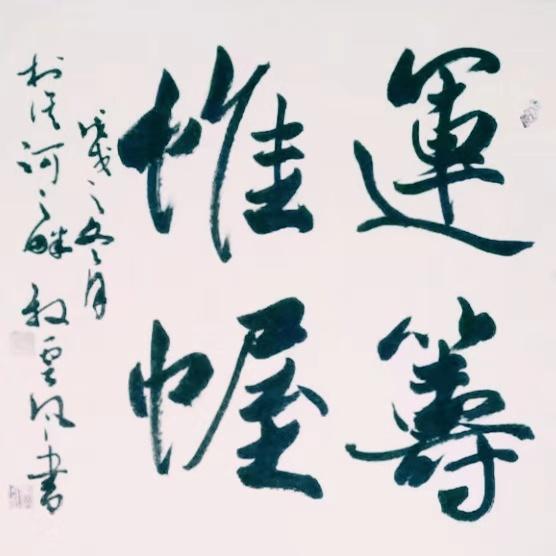 運籌
帷幄
戊戌之冬月
於河之畔雲風書